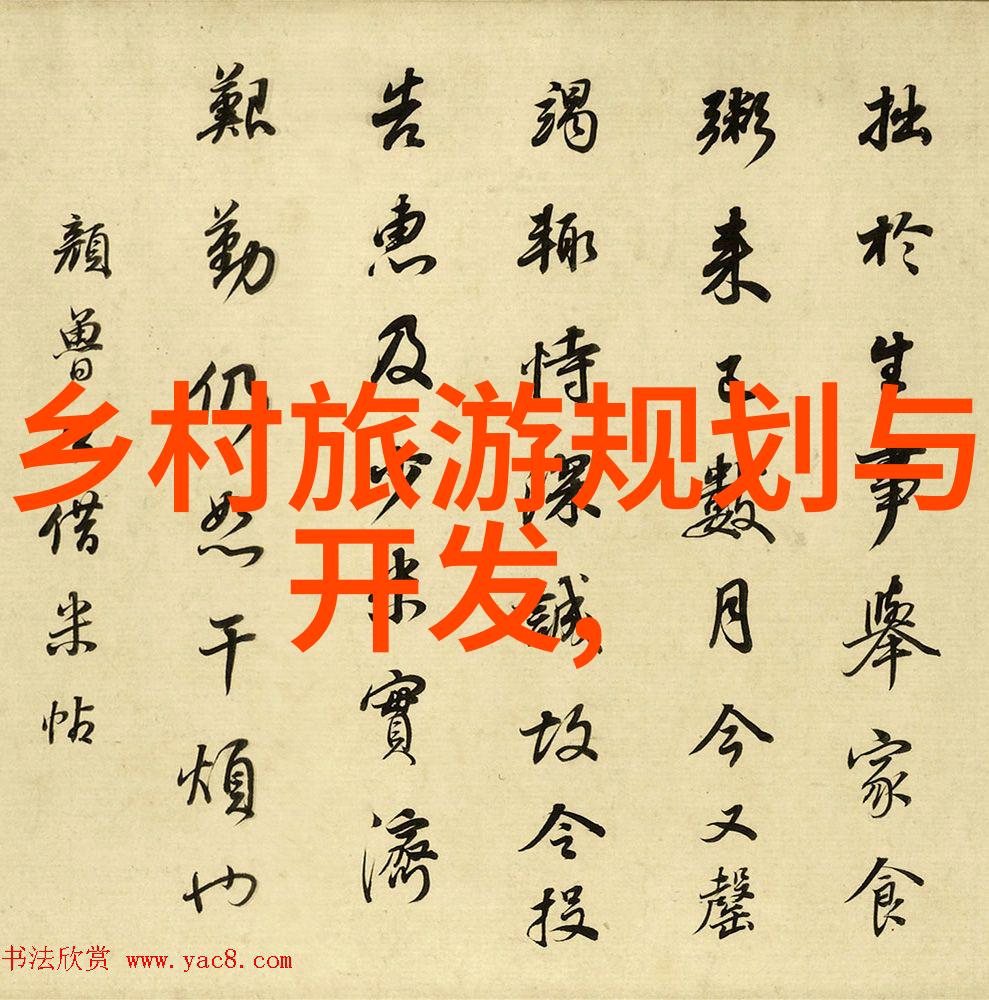 拙於生事舉家食
粥来已數月今又罄
竭輙恃深誠故令投
告惠及少米實濟
艱勤仍恕干煩也
顔魯公借米帖
乡村旅游规划与
开发,
书法欣赏 www.yac8.com